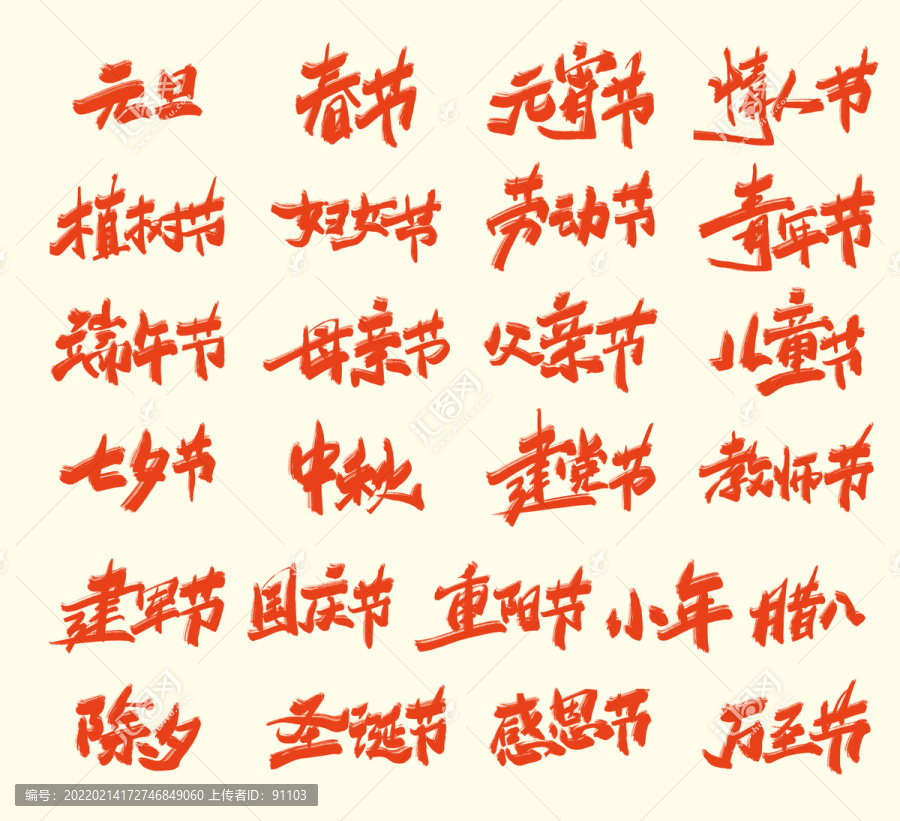 元旦 春节 元宵节 情人节
植树节 妇女节 劳动节 青年节
端午节 母亲节 父亲节 儿童节
七夕节 中秋 建党节 教师节
建军节 国庆节 重阳节 小年 腊八
除夕 圣诞节 感恩节 万圣节
编号：20220214172746849060 上传者ID：91103